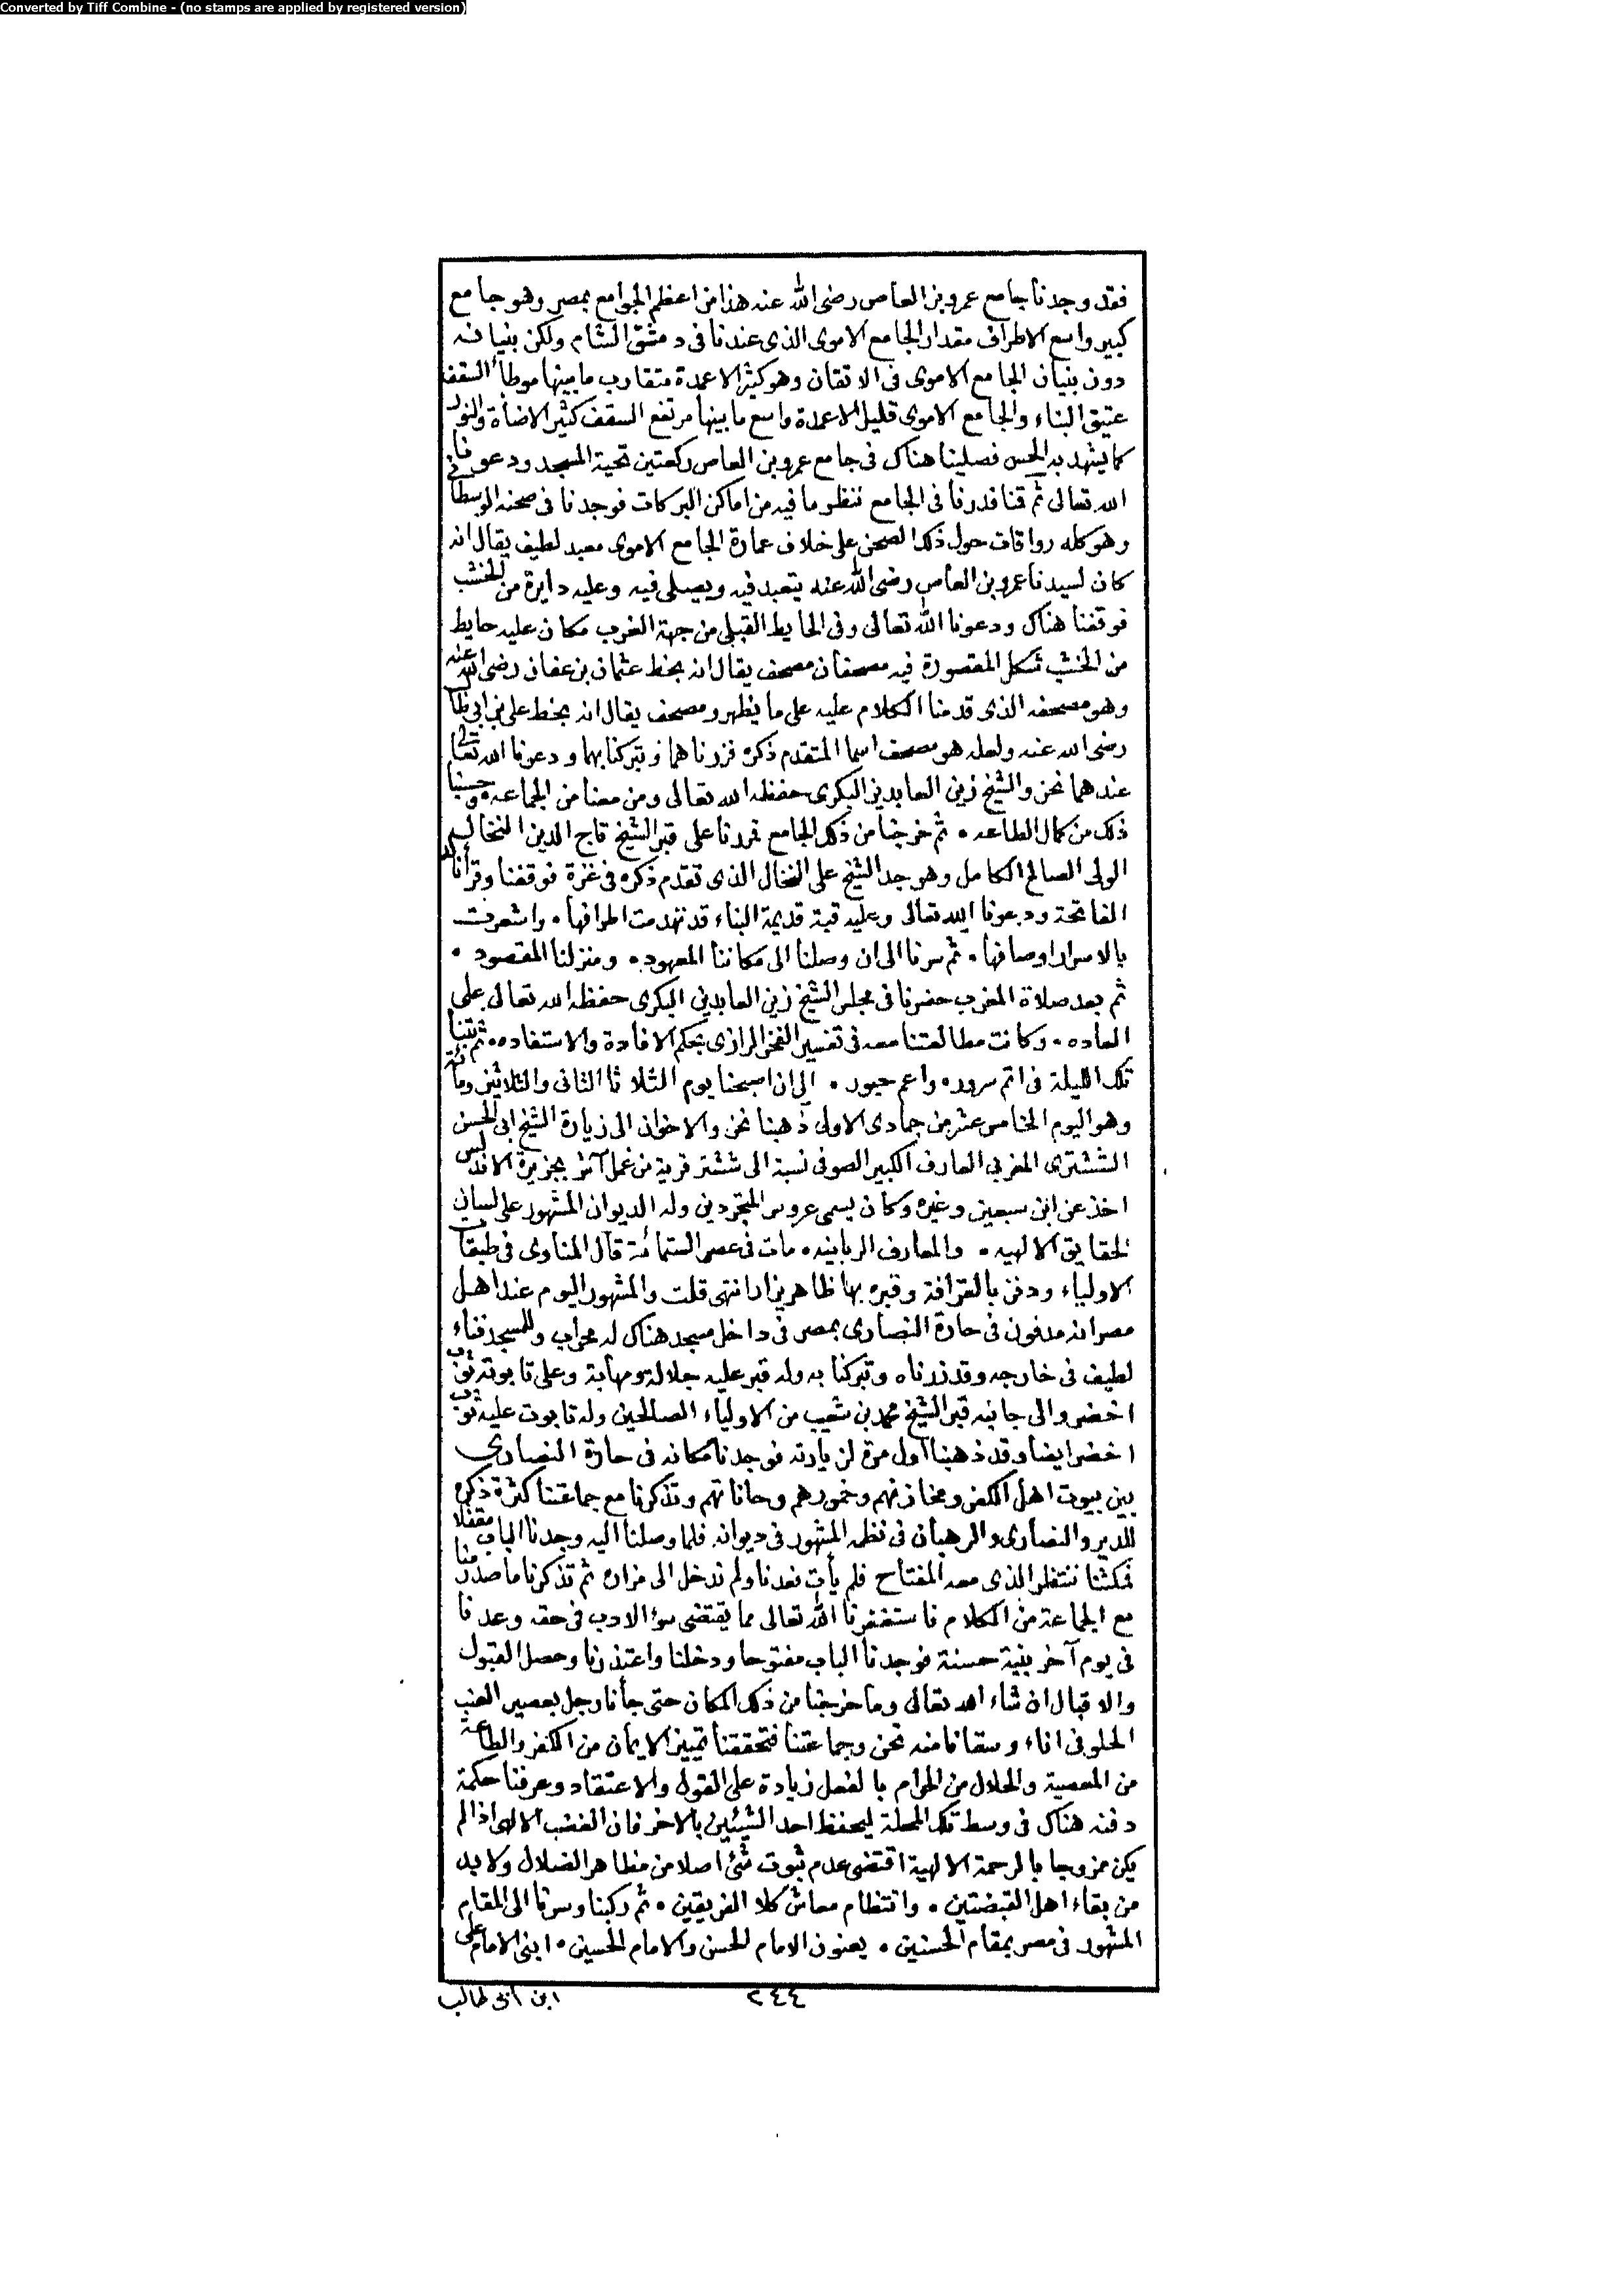 Converted by Tiff Combine - (no stamps are applied by registered version)
فقد وجدنا جامع عمرو بن العاص رضى الله عنه هذا من اعظم الجوامع بمصر وهو جامع
كبير واسع الاطراف مقدار الجامع الاموى الذى عندنا فى دمشق الشام ولكن بنيانه
دون بنيان الجامع الاموى فى الاتقان وهو كثير الاعمدة متقارب ما بينها موطأ السقف
عتيق البناء والجامع الاموى قليل الاعمدة واسع ما بينها مرتفع السقف كثير الاضأة والنور
كما يشهد به الحس فصلينا هناك فى جامع عمرو بن العاص ركعتين تحية المسجد ودعونا
الله تعالى ثم قمنا فدرنا فى الجامع ننظر ما فيه من اماكن البركات فوجدنا فى صحنه الوسطانى
وهو كله رواقات حول ذلك الصحن على خلاف عمارة الجامع الاموى معبد لطيف يقال انه
كان لسيدنا عمرو بن العاص رضى الله عنه يتعبد فيه ويصلى فيه وعليه دايرة من الخشب
فوقفنا هناك ودعونا الله تعالى وفى الحايط القبلى من جهة الغرب مكان عليه حايط
من الخشب شكل المقصورة فيه مصحفان مصحف يقال انه بخط عثمان بن عفان رضى الله عنه
وهو مصحفه الذى قدمنا الكلام عليه على ما يظهر ومصحف يقال انه بخط على بن ابى طا
رضى الله عنه ولعله هو مصحف اسما المتقدم ذكره فزرناهما وتبركنا بهما ودعونا الله تعالى
عندهما نحن والشيخ زين العابدين البكرى حفظه الله تعالى ومن معنا من الجماعه وحسبنا
ذلك من كمال الطاعه • ثم خرجنا من ذلك الجامع فمررنا على قبر الشيخ تاج الدين النخالـ
الولى الصالح الكامل وهو جد الشيخ على النخال الذى تقدم ذكره فى غزة فوقفنا وقرأنا له
الفاتحة ودعونا الله تعالى وعليه قبة قديمة البناء قد تهدمت اطرافها • واشعرت
بالاسرار اوصافها • ثم سرنا الى ان وصلنا الى مكاننا المعهود • ومنزلنا المقصود •
ثم بعد صلاة المغرب حضرنا فى مجلس الشيخ زين العابدين البكرى حفظه الله تعالى على
العاده • وكانت مطالعتنا معه فى تفسير الفخر الرازى بحكم الافادة والاستفاده • ثم بتنا
تلك الليلة فى اتم سرور • واعم حبور • الى ان اصبحنا يوم الثلاثا الثانى والثلاثين ومائة
وهو اليوم الخامس عشر من جمادى الاولى ذهبنا نحن والاخوان الى زيارة الشيخ ابى الحسن
الششترى المغربى العارف الكبير الصوفى نسبة الى ششتر قرية من عمل آش بجزيرة الاندلس
اخذ عن ابن سبعين وغيره وكان يسمى عروس المتجردين وله الديوان المشهور على لسان
الحقايق الالهيه • والمعارف الربانيه • مات فى عصر الستمائة قال المناوى فى طبقات
الاولياء ودفن بالقرافة وقبره بها ظاهر يزار انتهى قلت والمشهور اليوم عند اهل
مصر انه مدفون فى حارة النصارى بمصر فى داخل مسجد هناك له محراب وللمسجد فناء
لطيف فى خارجه وقد زرناه وتبركنا به وله قبر عليه جلالة ومهابة وعلى تابوته ثوب
اخضر والى جانبه قبر الشيخ محمد بن شعيب من الاولياء الصالحين وله تابوت عليه ثوب
اخضر ايضا وقد ذهبنا اول مرة لزيارته فوجدنا مكانه فى حارة النصارى
بين بيوت اهل الكفر ومخازنهم وخمورهم وحاناتهم وتذكرنا مع جماعتنا كثرة ذكره
للدير والنصارى والرهبان فى نظمه المشهور فى ديوانه فلما وصلنا اليه وجدنا الباب مقفلا
فمكثنا ننتظر الذى معه المفتاح فلم يأت فعدنا ولم ندخل الى مزاره ثم تذكرنا ما صدر منا
مع الجماعة من الكلام فاستغفرنا الله تعالى مما يقتضى سوء الادب فى حقه وعدنا
فى يوم آخر بنية حسنة فوجدنا الباب مفتوحا ودخلنا واعتذرنا وحصل القبول
والاقبال ان شاء الله تعالى وما خرجنا من ذلك المكان حتى جأنا رجل بعصير العنب
الحلو فى اناء وسقانا منه نحن وجماعتنا فتحققنا تمييز الايمان من الكفر والطاعة
من المعصية والحلال من الحرام بالفعل زيادة على القول والاعتقاد وعرفنا حكمة
دفنه هناك فى وسط تلك المحلة ليحفظ احد الشيئين بالاخر فان الغضب الالهى اذا لم
يكن ممزوجا بالرحمة الالهية اقتضى عدم ثبوت شئ اصلا من مظاهر الضلال ولا بد
من بقاء اهل القبضتين • وانتظام معاش كلا الفريقين • ثم ركبنا وسرنا الى المقام
المشهور فى مصر بمقام الحسنين • يعنون الامام الحسن والامام الحسين • ابنى الامام على
ابن أبى طالب
٢٤٤